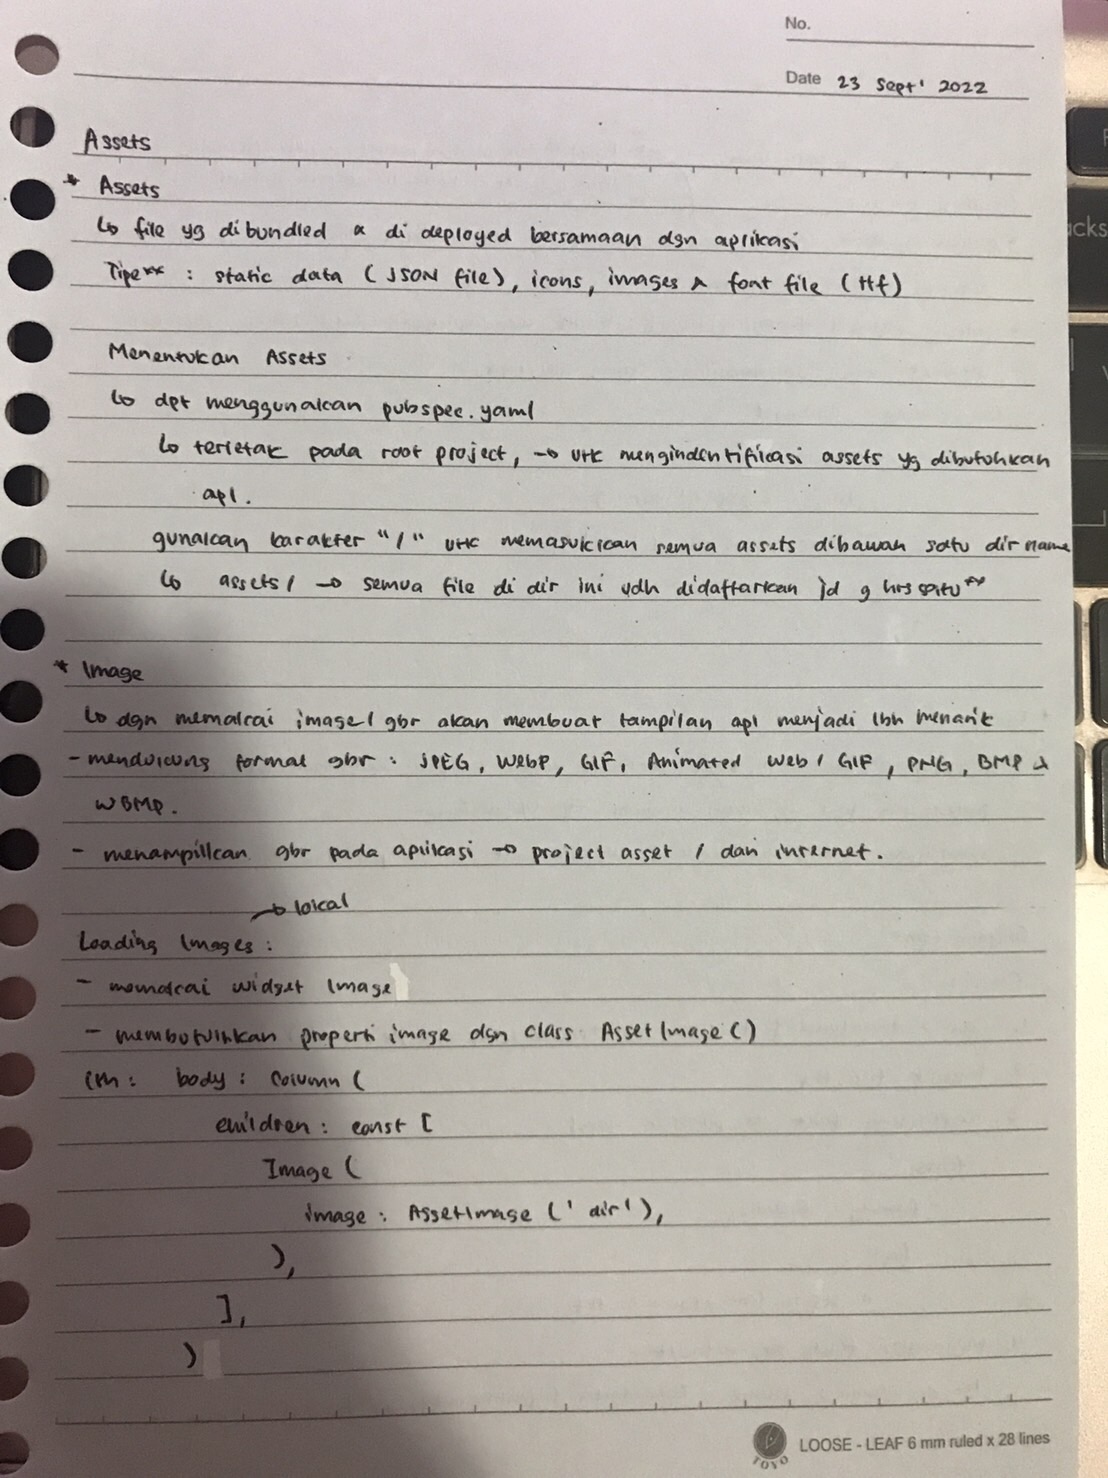 No.
Date 23 Sept' 2022
Assets
* Assets
↳ file yg dibundled & di deployed bersamaan dgn aplikasi
Tipe** : static data (JSON file), icons, images & font file (ttf)
Menentukan Assets
↳ dpt menggunakan pubspec.yaml
↳ terletak pada root project, → utk mengindentifikasi assets yg dibutuhkan
apl.
gunakan karakter "/" utk memasukkan semua assets dibawah satu dir name
↳ assets/ → semua file di dir ini udh didaftarkan jd g hrs satu**
* Image
↳ dgn memakai image/gbr akan membuat tampilan apl menjadi lbh menarik
- mendukung format gbr : JPEG, WebP, GIF, Animated Web / GIF, PNG, BMP &
WBMP.
- menampilkan gbr pada aplikasi → project asset / dan internet.
→ lokal
Loading Images :
- memakai widget Image
- membutuhkan properti image dgn class AssetImage()
cth : body : Column (
children : const [
Image (
image : AssetImage ('dir'),
),
],
)
TOYO
LOOSE - LEAF 6 mm ruled x 28 lines